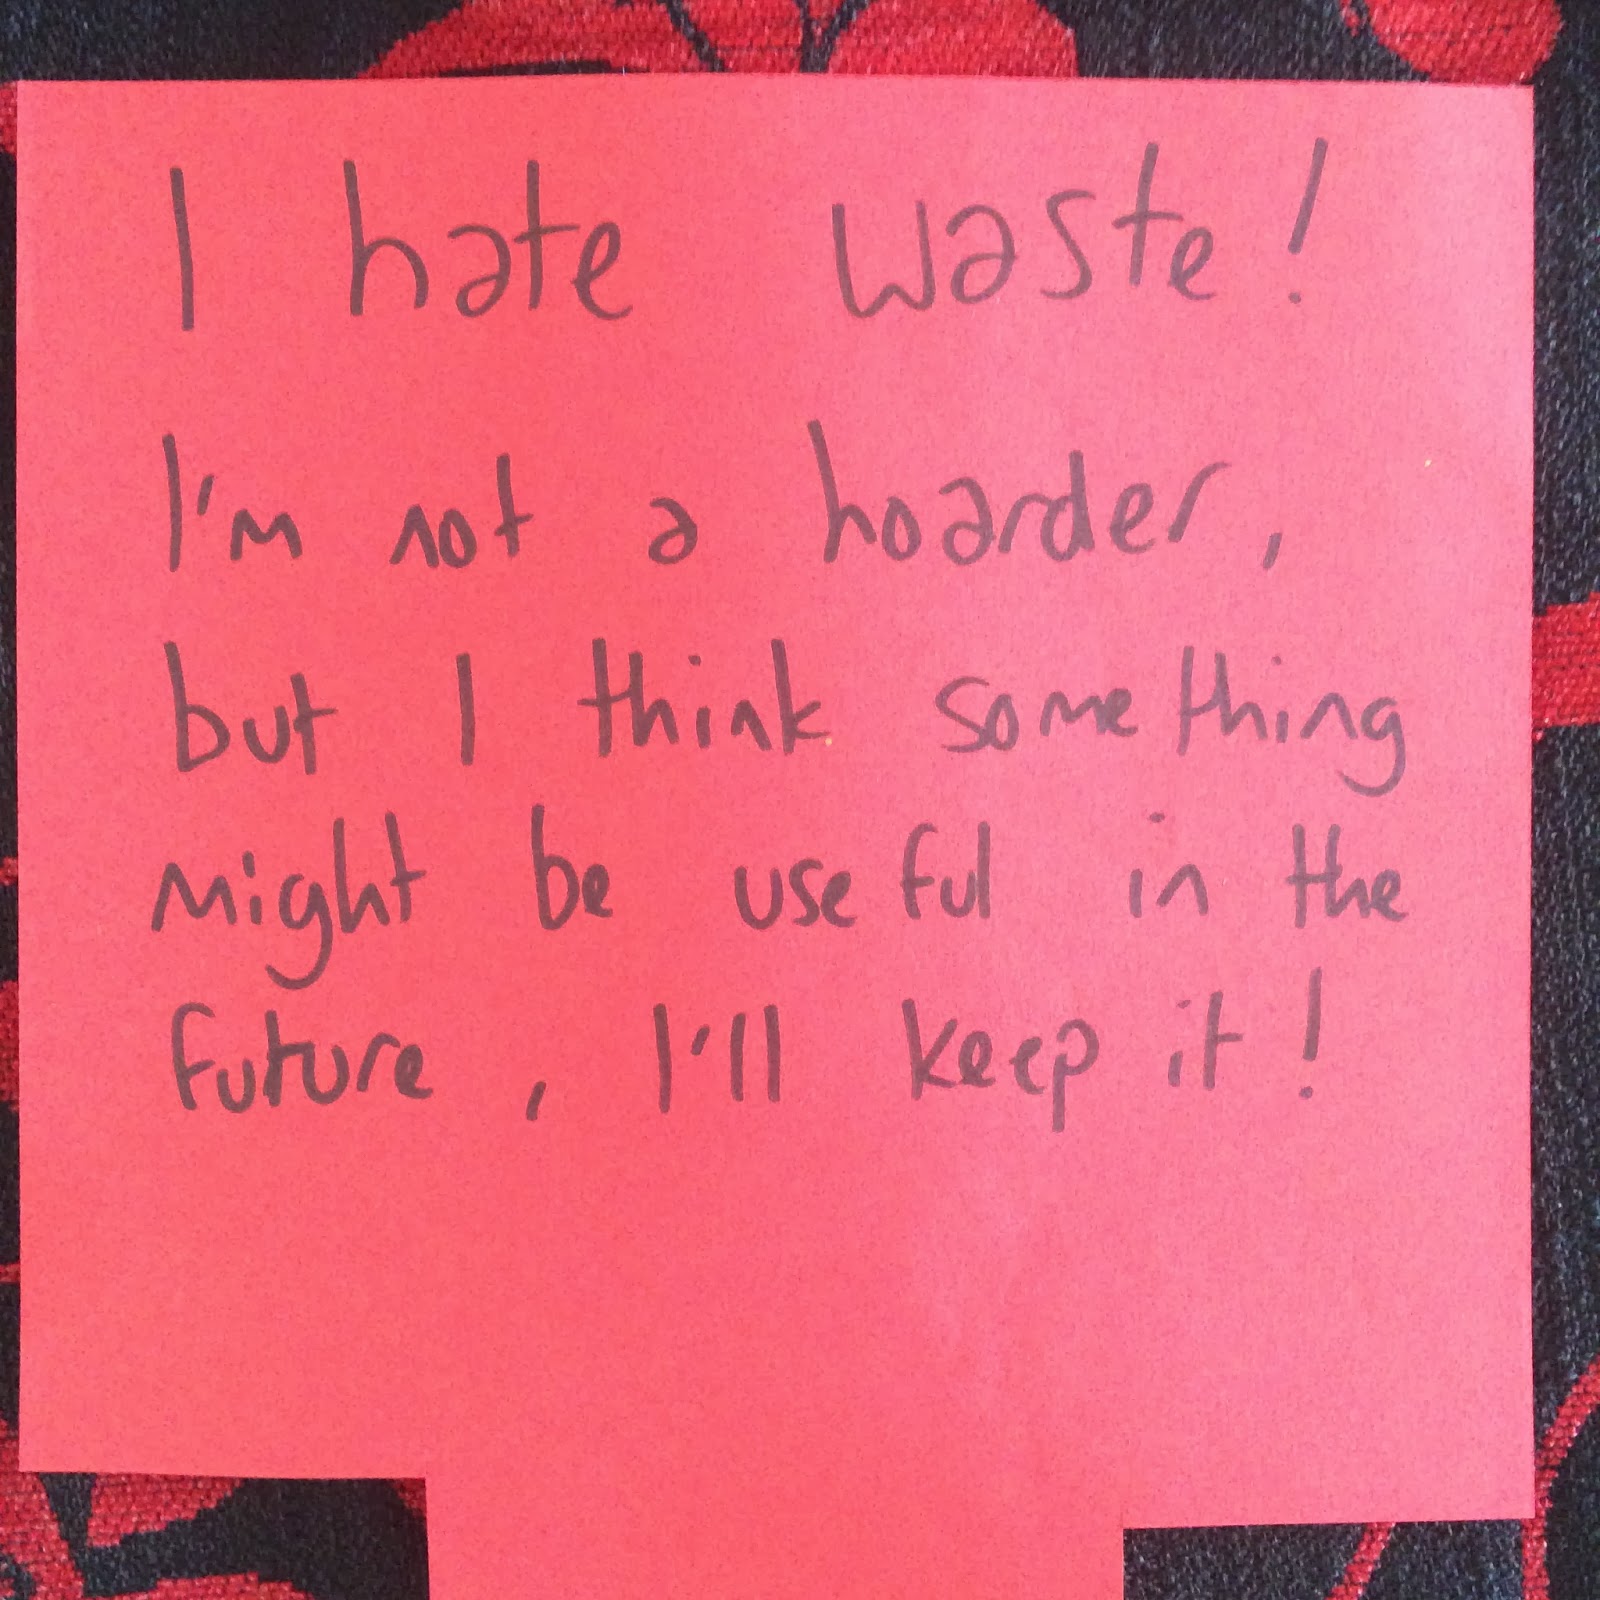 I hate waste!
I'm not a hoarder,
but I think something
might be useful in the
future, I'll keep it!